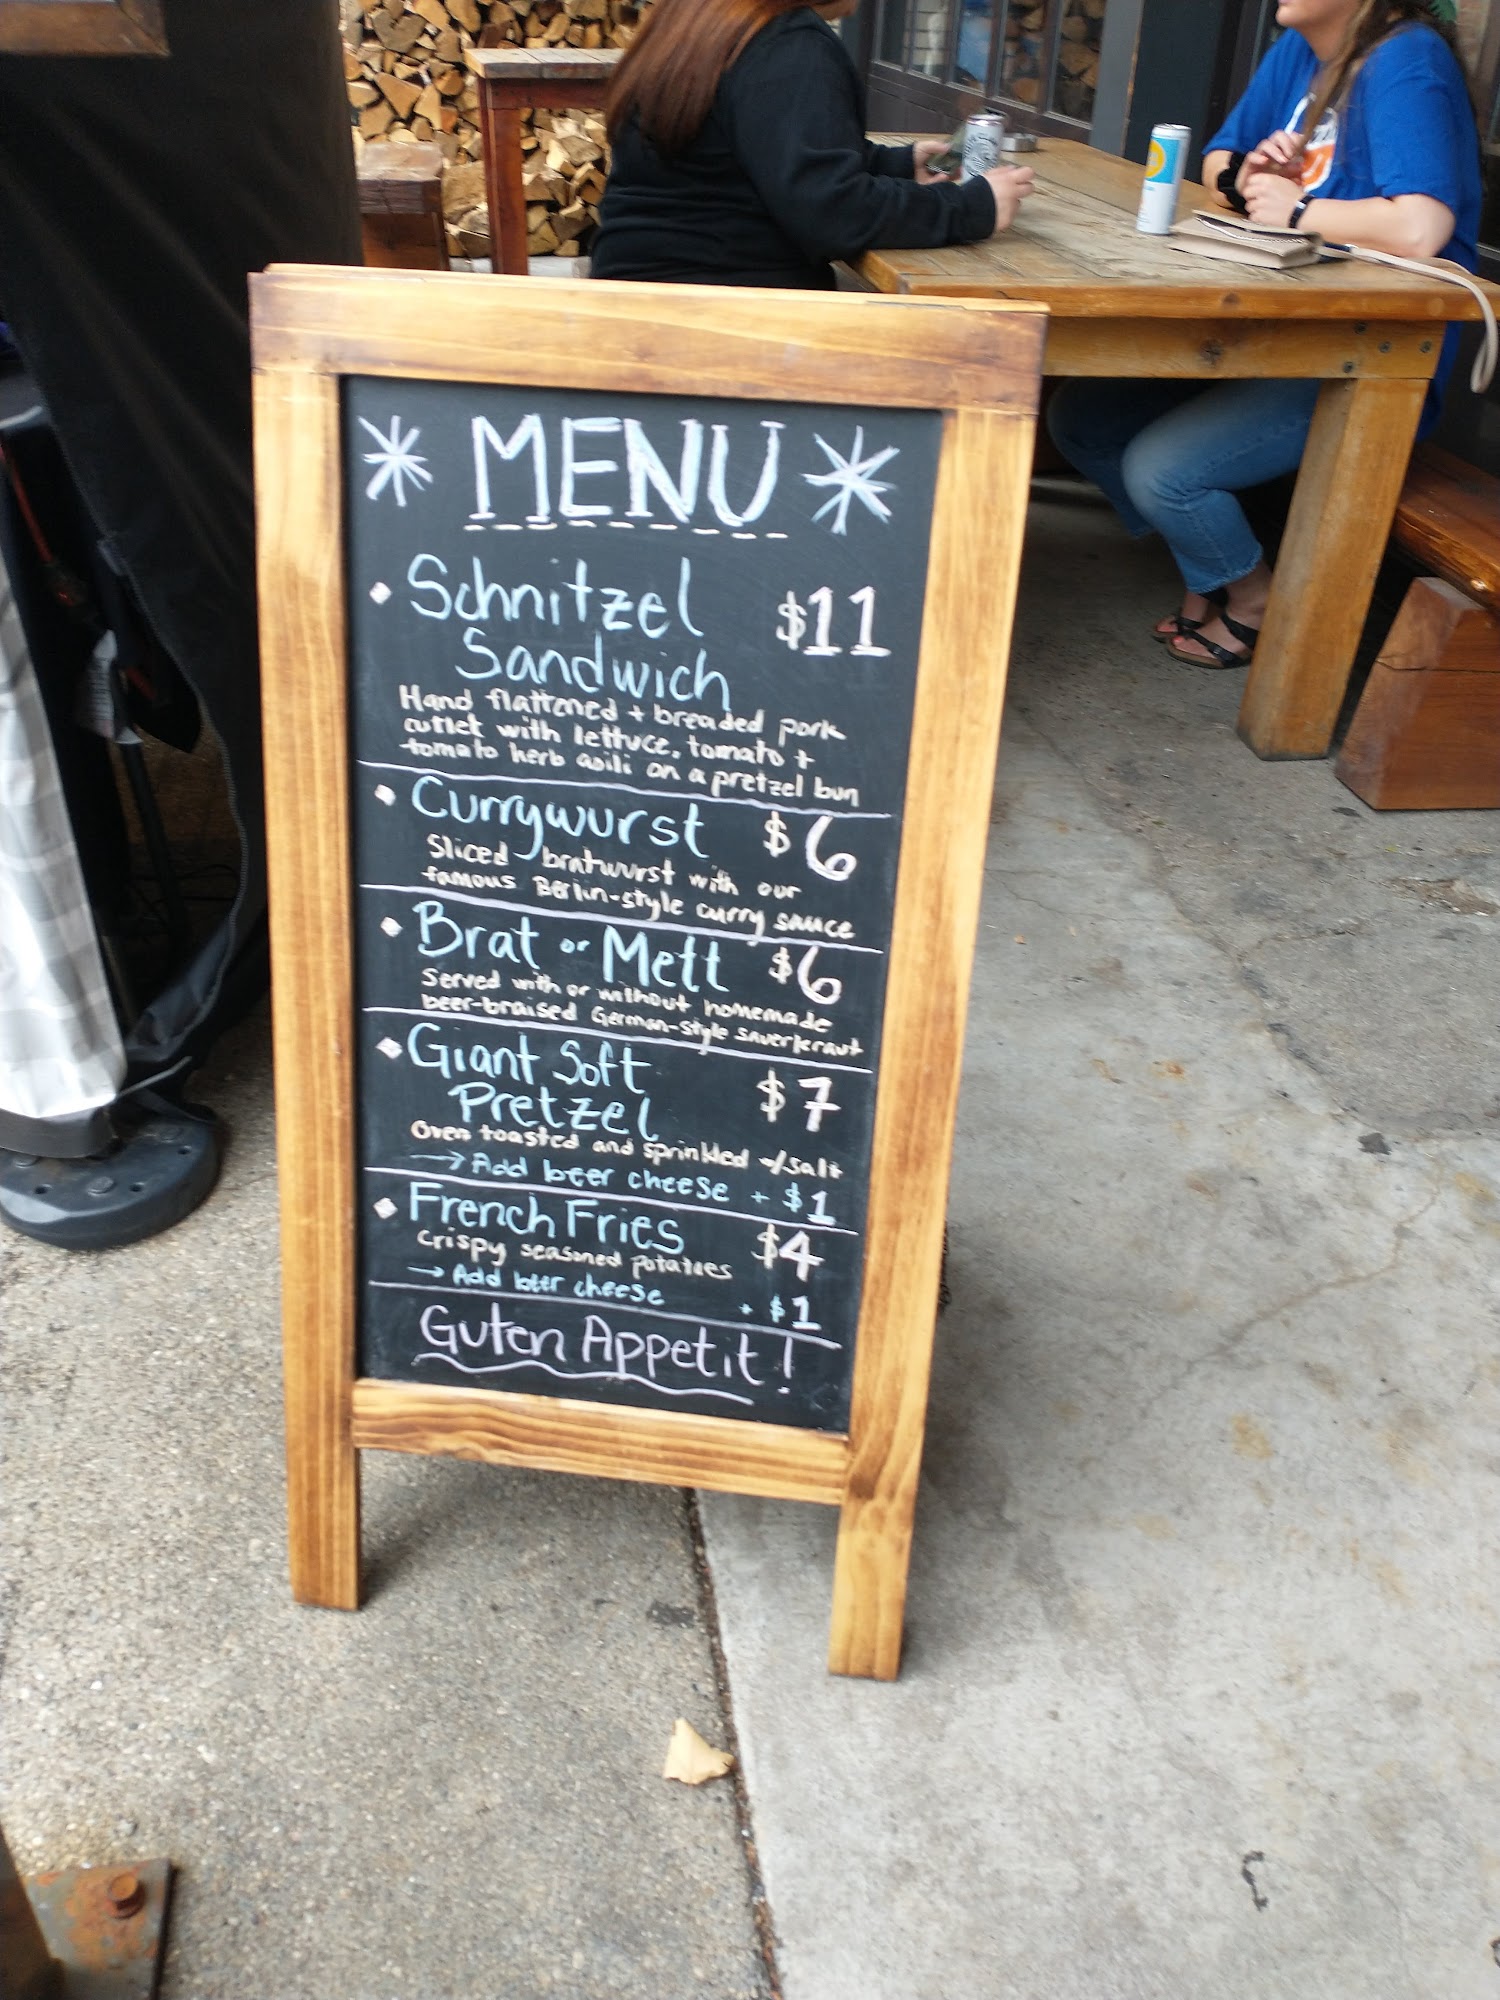 * MENU *
Schnitzel $11
Sandwich
Hand flattened + breaded pork
cutlet with lettuce, tomato +
tomato herb aoili on a pretzel bun
Currywurst $6
Sliced bratwurst with our
famous Berlin-style curry sauce
Brat or Mett $6
Served with or without homemade
beer-braised German-style sauerkraut
Giant Soft $7
Pretzel
Oven toasted and sprinkled w/salt
→ Add beer cheese + $1
French Fries $4
Crispy seasoned potatoes
→ Add beer cheese + $1
Guten Appetit!